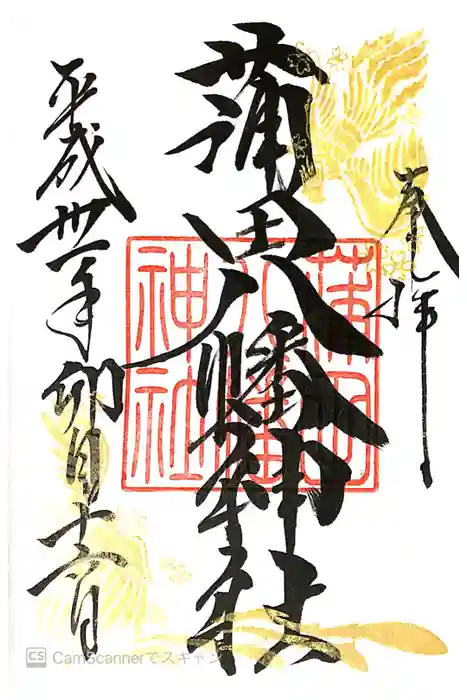 奉拝
蒲田八幡神社
蒲田
八幡
神社
平成卅一年卯月十六日
CS CamScannerでスキャン